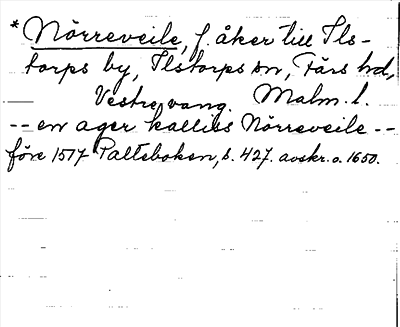 *Nörreveile, f. åker till Ils-
torps by, Ilstorps sn, Färs hd,
Vestre vang. Malm. l.
-- en ager kalliss Nörreveile --
före 1517 Palteboken, s. 427. avskr. o. 1650.